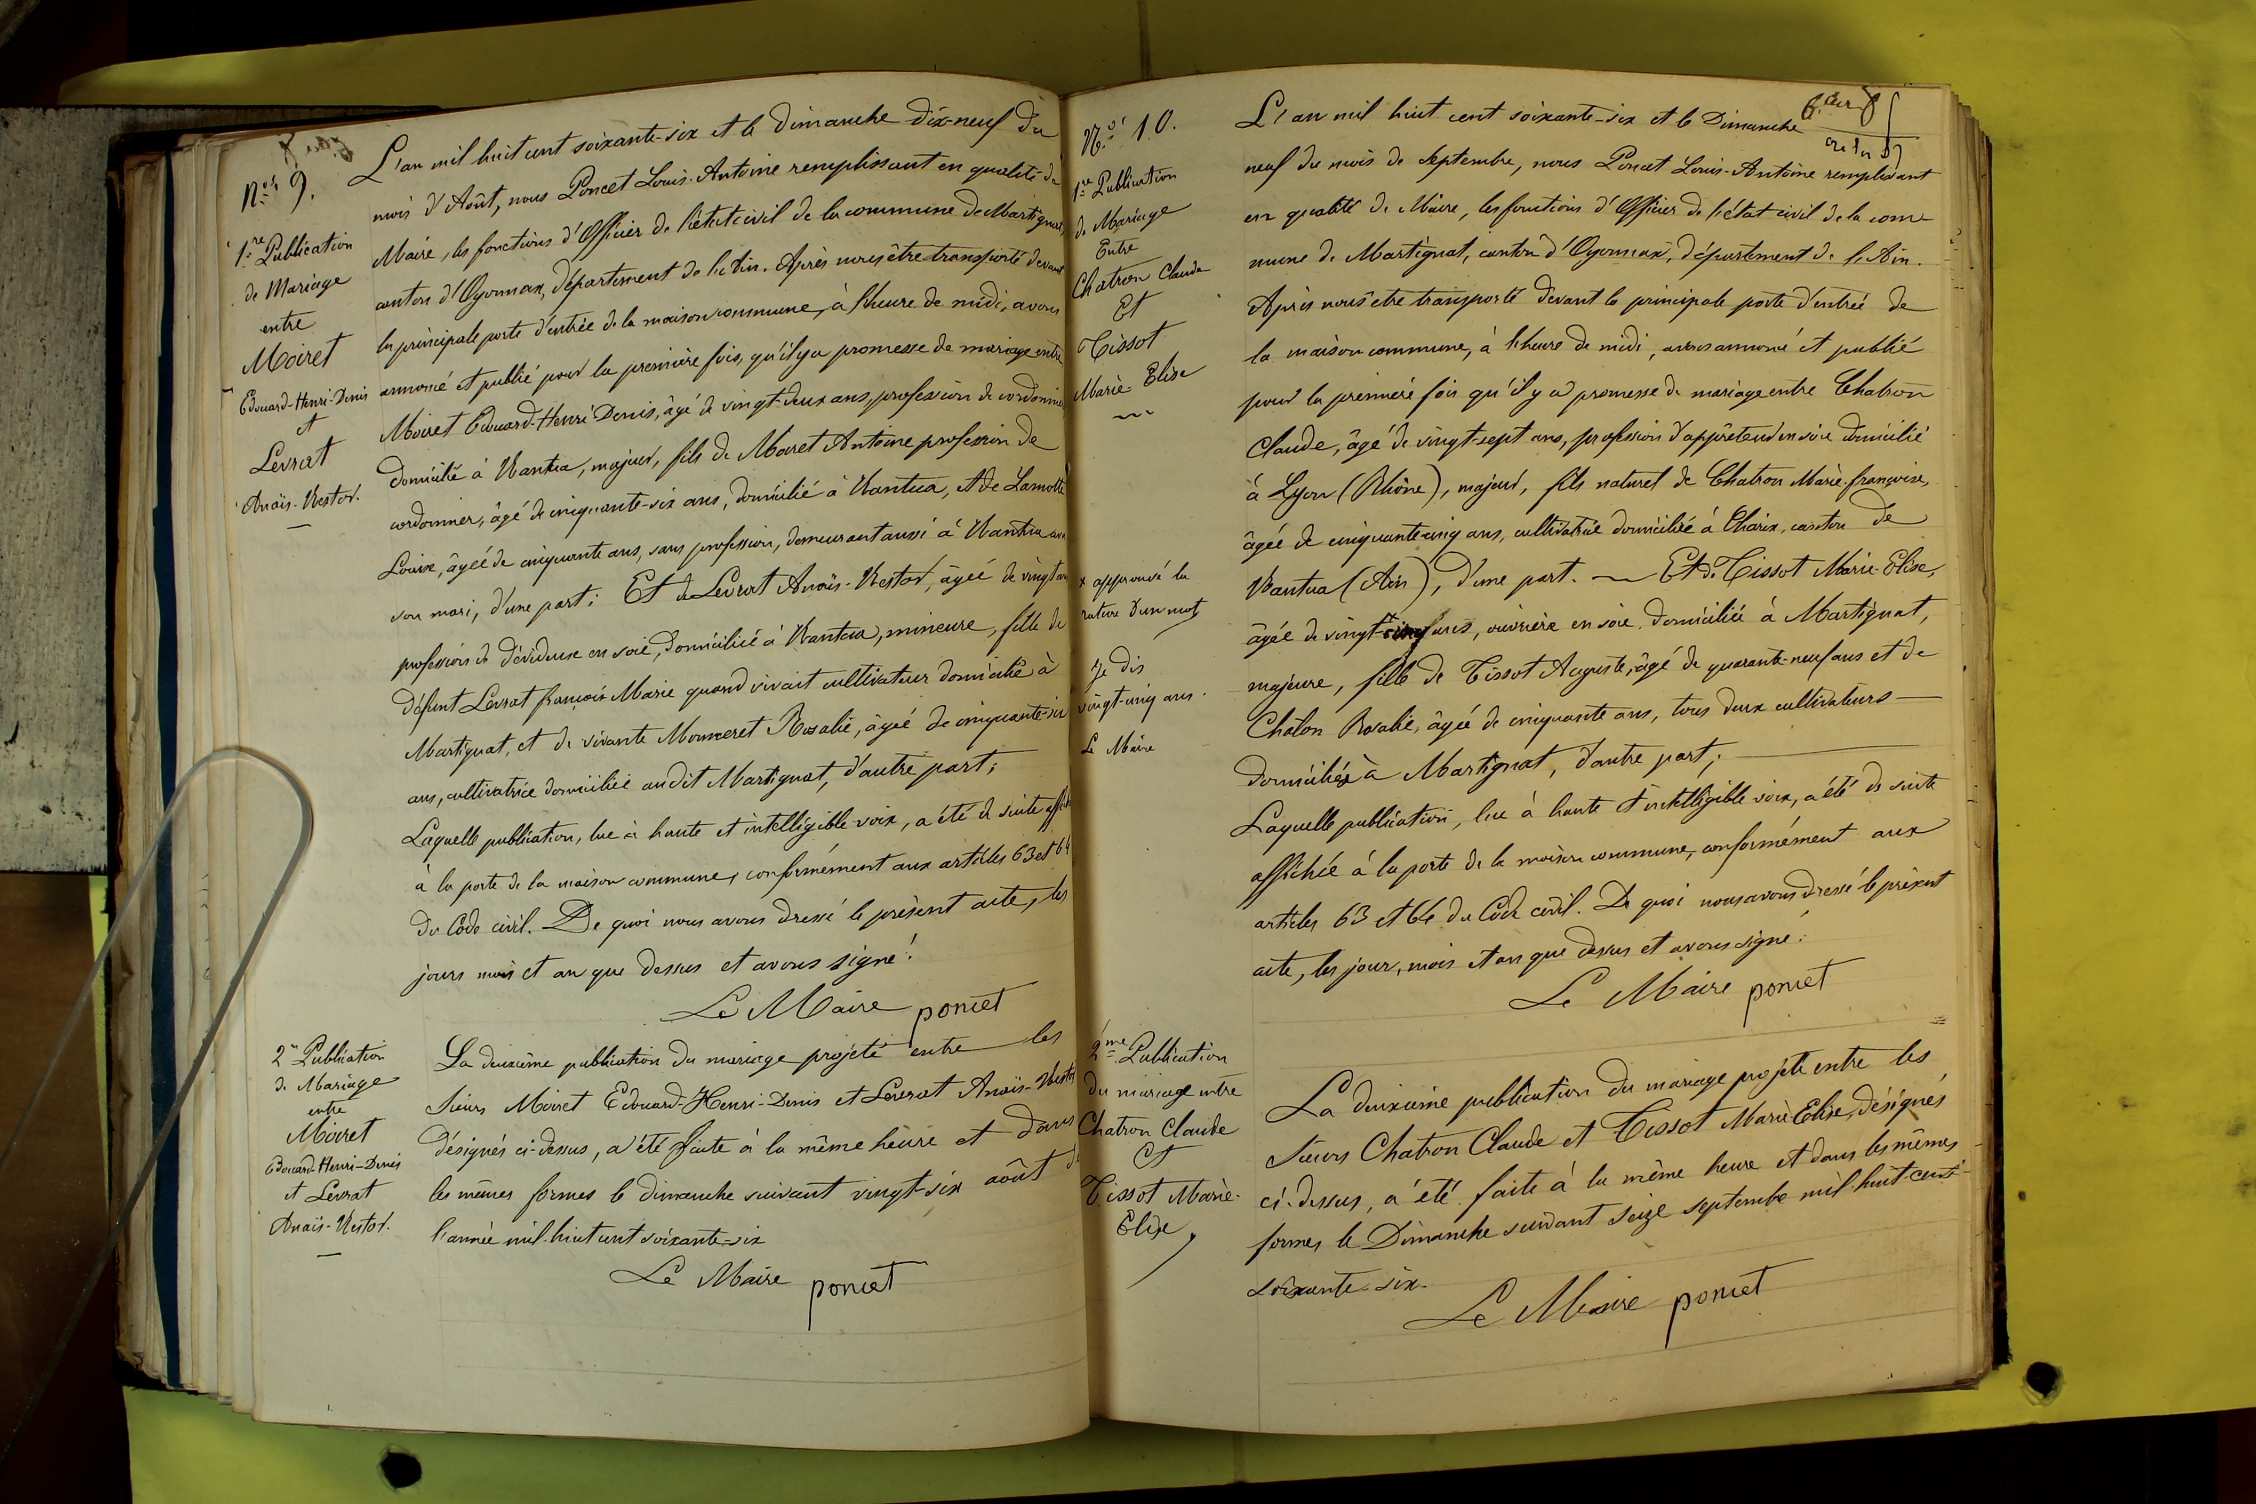 N.os 9.
1.re Publication
de Mariage
entre
Moiret
Edouard-Henri-Denis
et
Levrat
Anaïs-Nestor.
L'an mil huit cent soixante-six et le dimanche dix-neuf du
mois d'Août, nous Poncet Louis-Antoine remplissant en qualité de
Maire, les fonctions d'Officier de l'état civil de la commune de Martignat,
canton d'Oyonnax, département de l'Ain. Après nous être transporté devant
la principale porte d'entrée de la maison commune, à l'heure de midi, avons
annoncé et publié pour la première fois, qu'il y a promesse de mariage entre
Moiret Edouard-Henri-Denis, âgé de vingt-deux ans, profession de cordonnier
domicilié à Nantua, majeur, fils de Moiret Antoine profession de
cordonnier, âgé de cinquante-six ans, domicilié à Nantua, et de Lamotte
Louise, âgée de cinquante ans, sans profession, demeurant aussi à Nantua avec
son mari, d'une part; Et de Levrat Anaïs-Nestor, âgée de vingt ans
profession de dévideuse en soie, domiciliée à Nantua, mineure, fille de
défunt Levrat françois Marie quand vivait cultivateur domicilié à
Martignat, et de vivante Monneret Rosalie, âgée de cinquante-six
ans, cultivatrice domiciliée audit Martignat, d'autre part;
Laquelle publication, lue à haute et intelligible voix, a été de suite affichée
à la porte de la maison commune, conformément aux articles 63 et 64
du Code civil. De quoi nous avons dressé le présent acte, les
jours mois et an que dessus et avons signé.
Le Maire poncet
2e Publication
de Mariage
entre
Moiret
Edouard-Henri-Denis
et Levrat
Anaïs-Nestor.
La deuxième publication du mariage projeté entre les
sieurs Moiret Edouard-Henri-Denis et Levrat Anaïs-Nestor
désignés ci-dessus, a été faite à la même heure et dans
les mêmes formes le dimanche suivant vingt-six août de
l'année mil-huit cent soixante-six
Le Maire poncet
N.os 10.
1re Publication
de Mariage
Entre
Chatron Claude
Et
Tissot
Marie-Elise
x approuvé la
rature d'un mot
Je dis
vingt-cinq ans.
Le Maire
L'an mil huit cent soixante-six et le Dimanche
neuf du mois de Septembre, nous Poncet Louis-Antoine remplissant
en qualité de Maire, les fonctions d'Officier de l'état civil de la com-
mune de Martignat, canton d'Oyonnax, département de l'Ain.
Après nous être transporté devant la principale porte d'entrée de
la maison commune, à l'heure de midi, avons annoncé et publié
pour la première fois qu'il y a promesse de mariage entre Chatron
Claude, âgé de vingt-sept ans, profession d'apprêteur en soie domicilié
à Lyon (Rhône), majeur, fils naturel de Chatron Marie-françoise,
âgée de cinquante cinq ans, cultivatrice domiciliée à Charix, canton de
Nantua (Ain), d'une part. Et de Tissot Marie-Elise,
âgée de vingt-cinq ans, ouvrière en soie domiciliée à Martignat,
majeure, fille de Tissot Auguste, âgé de quarante-neuf ans et de
Chalon Rosalie, âgée de cinquante ans, tous deux cultivateurs
domiciliés à Martignat, d'autre part;
Laquelle publication, lue à haute et intelligible voix, a été de suite
affichée à la porte de la maison commune, conformément aux
articles 63 et 64 du Code civil. De quoi nous avons dressé le présent
acte, les jour, mois et an que dessus et avons signé.
Le Maire poncet
2me Publication
du mariage entre
Chatron Claude
Et
Tissot Marie-
Elise
La deuxième publication du mariage projeté entre les
Sieurs Chatron Claude et Tissot Marie Elise, désignés
ci-dessus, a été faite à la même heure et dans les mêmes
formes le Dimanche suivant seize septembre mil-huit-cent-
soixante-six.
Le Maire poncet